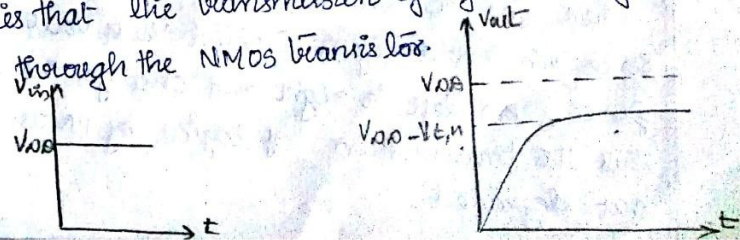 es that the transmission of
through the NMOS transistor.
Vin
VDD
t
Vout
VDD
VDD-Vt,n
t